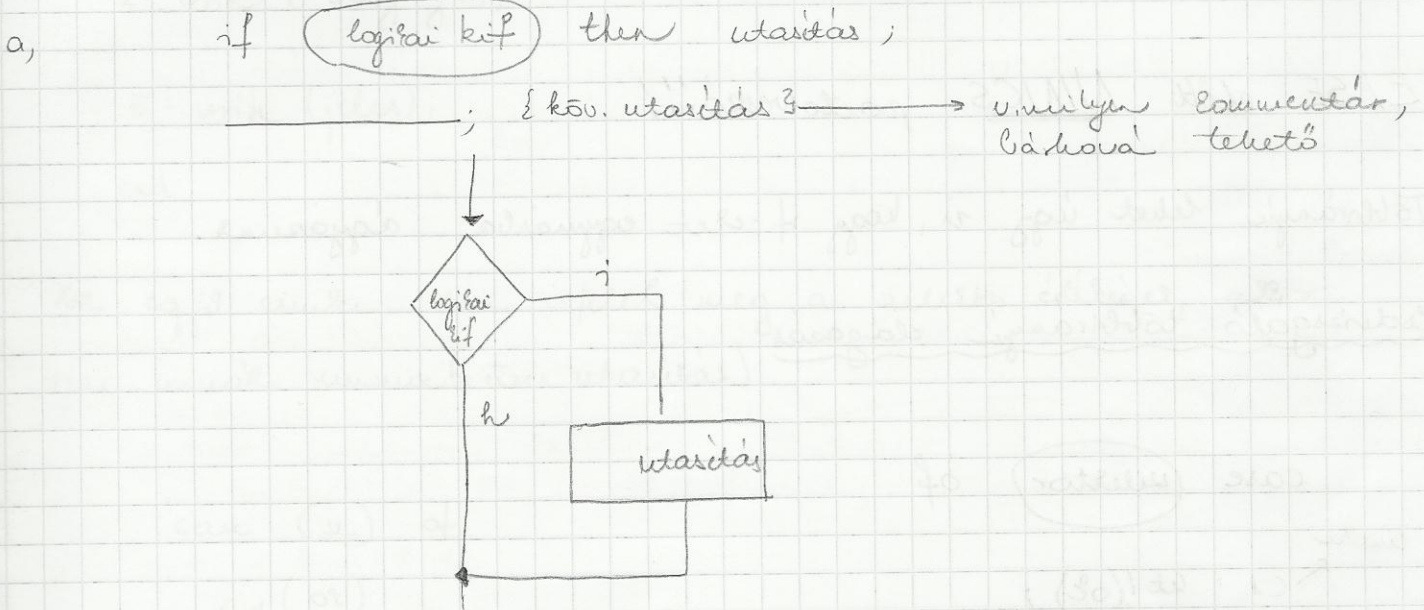 a, if logikai kif then utasítás ;
; {köv. utasítás} v.milyen kommentár,
bárhová tehető
i
logikai
kif
h
utasítás